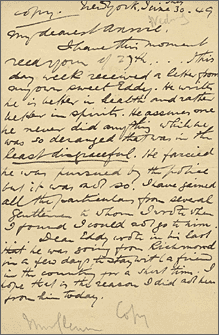 Copy.
New York, June 30 - 49
My dearest Annie.
I have this moment
recd yours of 27th... This
day week received a letter from
my own sweet Eddy. He writes
he is better in health and rather
better in spirits. He assures me
he never did anything while he
was so deranged that was in the
least disgraceful. He fancied
he was pursued by the police
but it was not so. I have learned
all the particulars from several
Gentlemen to whom I wrote when
I found I could not go to him.
Eddy wrote in his last
that he was going from Richmond
in a few days to stay with a friend
in the country for a short time. I
hope that is the reason I did not hear
from him today.
Copy